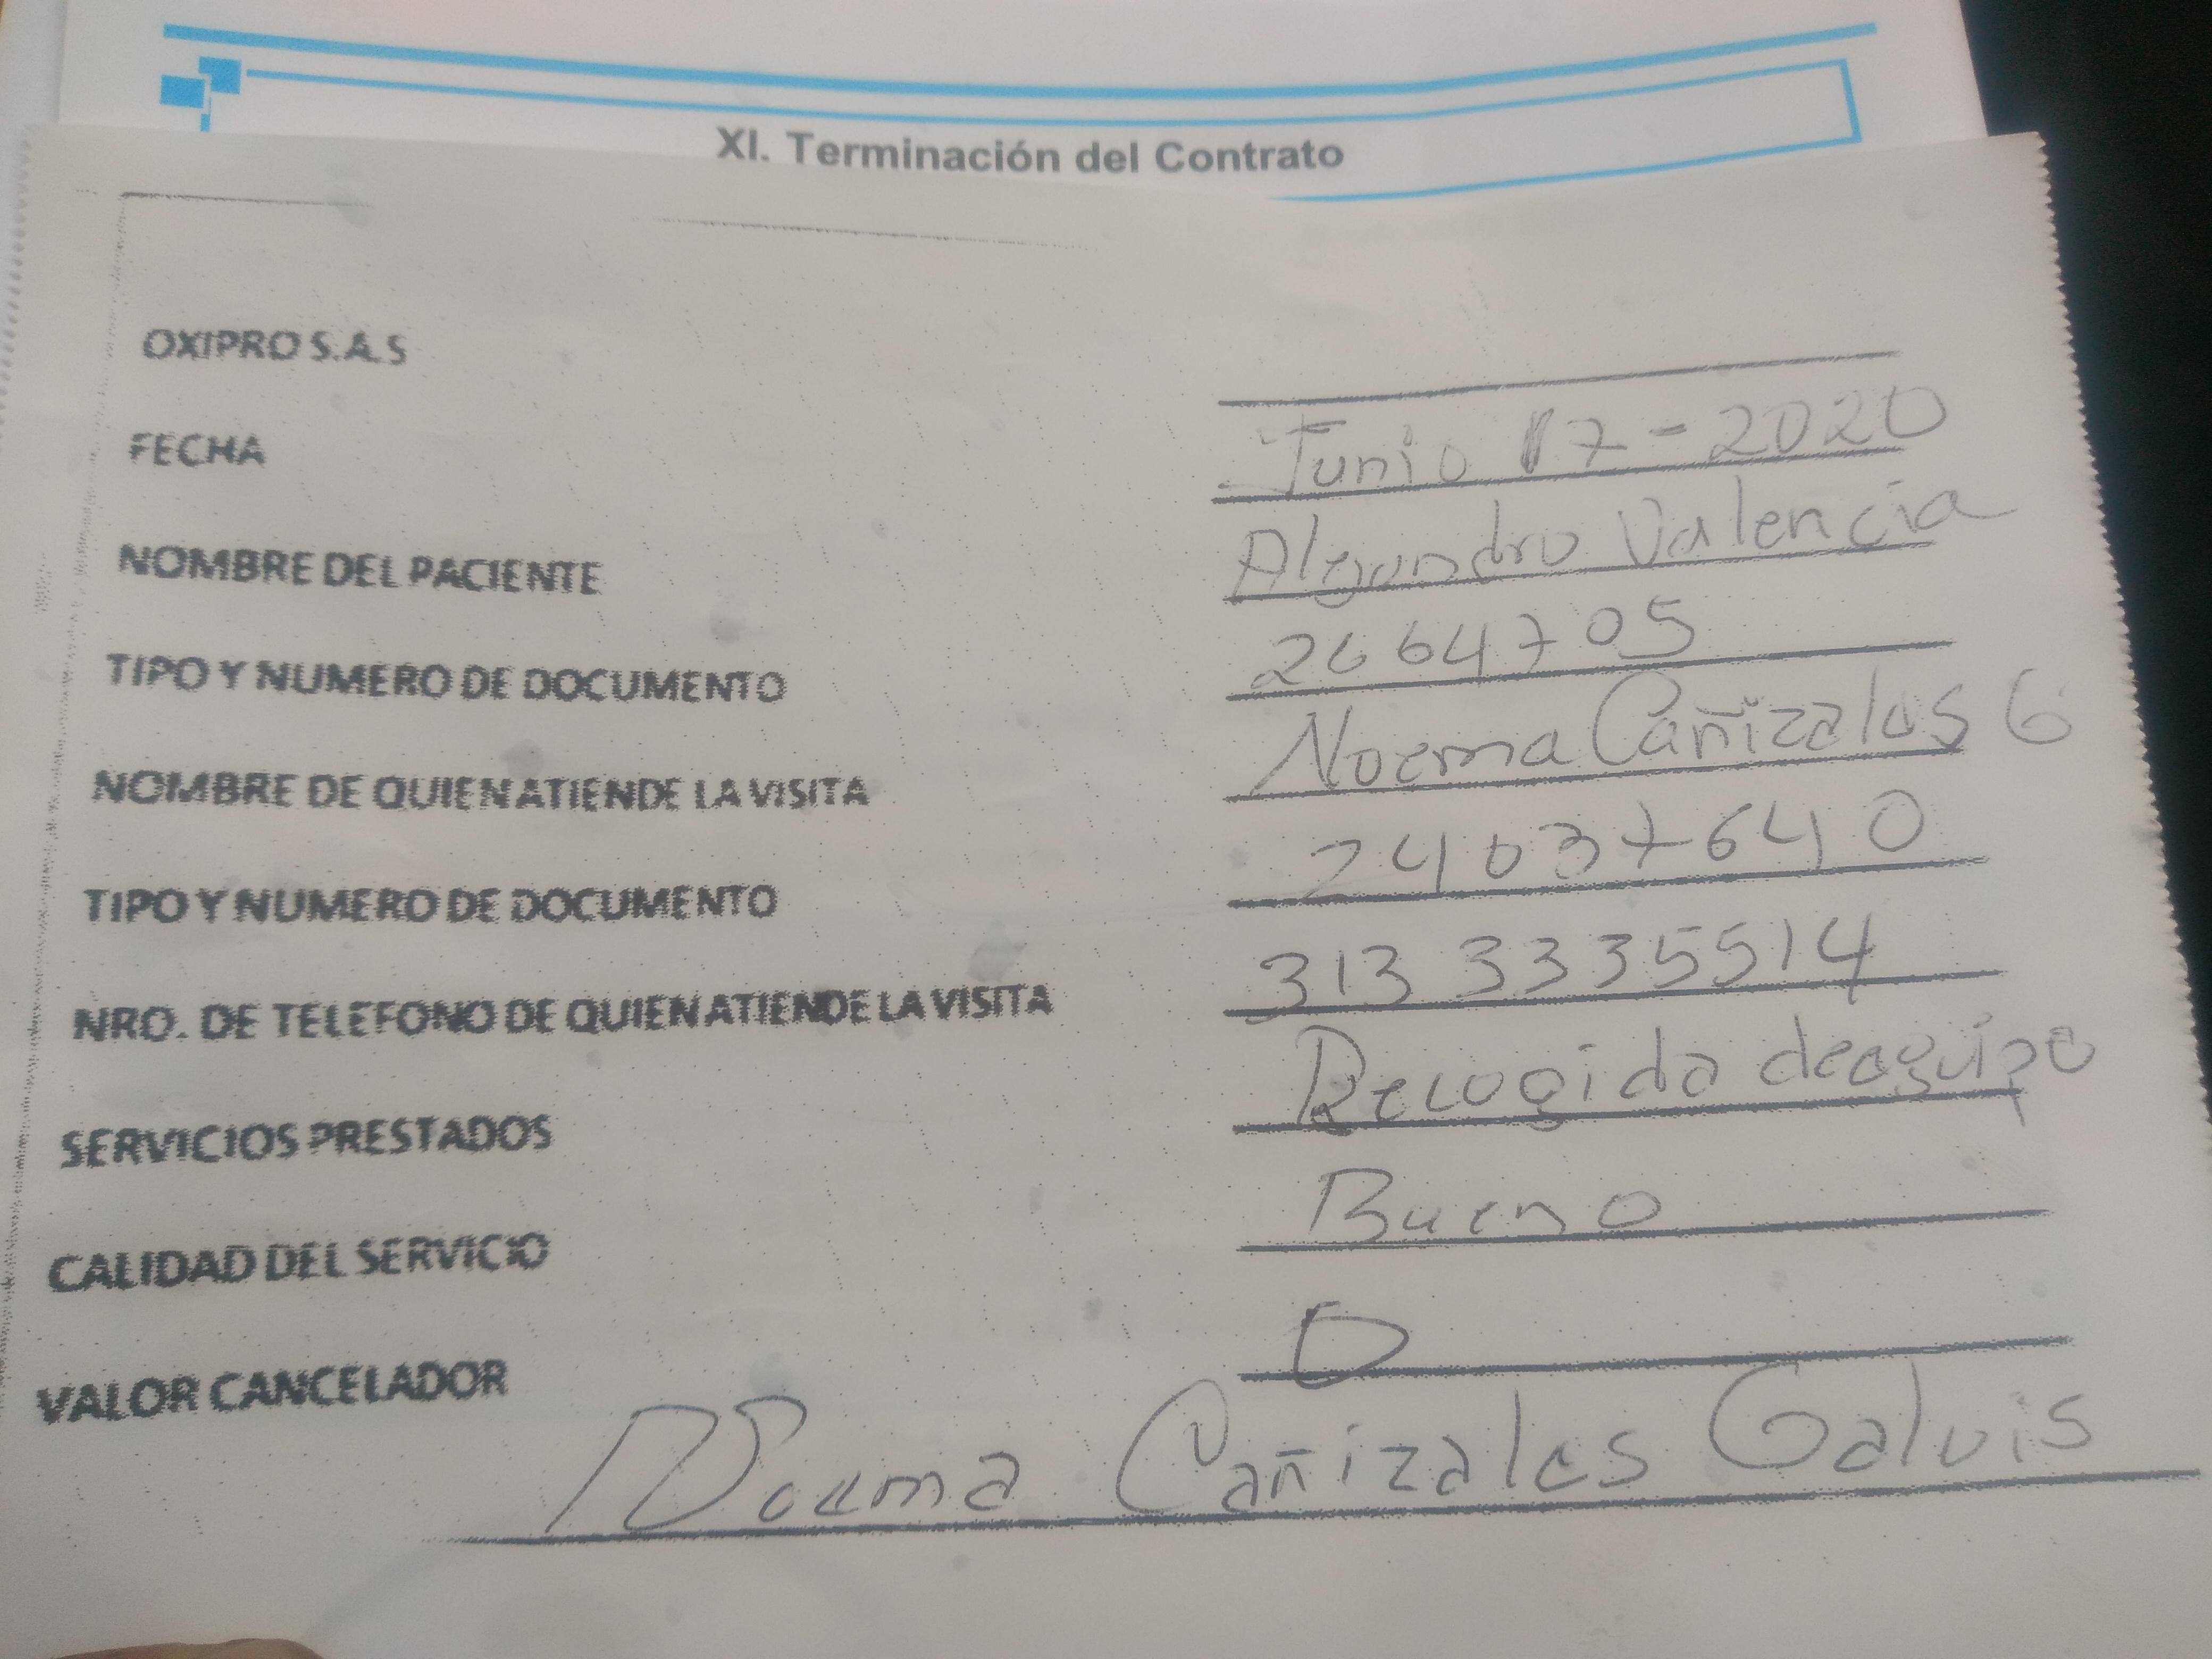 XI. Terminación del Contrato
OXIPRO S.A.S
FECHA Junio 17-2020
NOMBRE DEL PACIENTE Alejandro Valencia
TIPO Y NUMERO DE DOCUMENTO 2664705
NOMBRE DE QUIEN ATIENDE LA VISITA Noema Cañizales G
TIPO Y NUMERO DE DOCUMENTO 24037640
NRO. DE TELEFONO DE QUIEN ATIENDE LA VISITA 313 3335514
SERVICIOS PRESTADOS Recogida de
CALIDAD DEL SERVICIO Bueno
VALOR CANCELADOR 0
Noema Cañizales Galvis